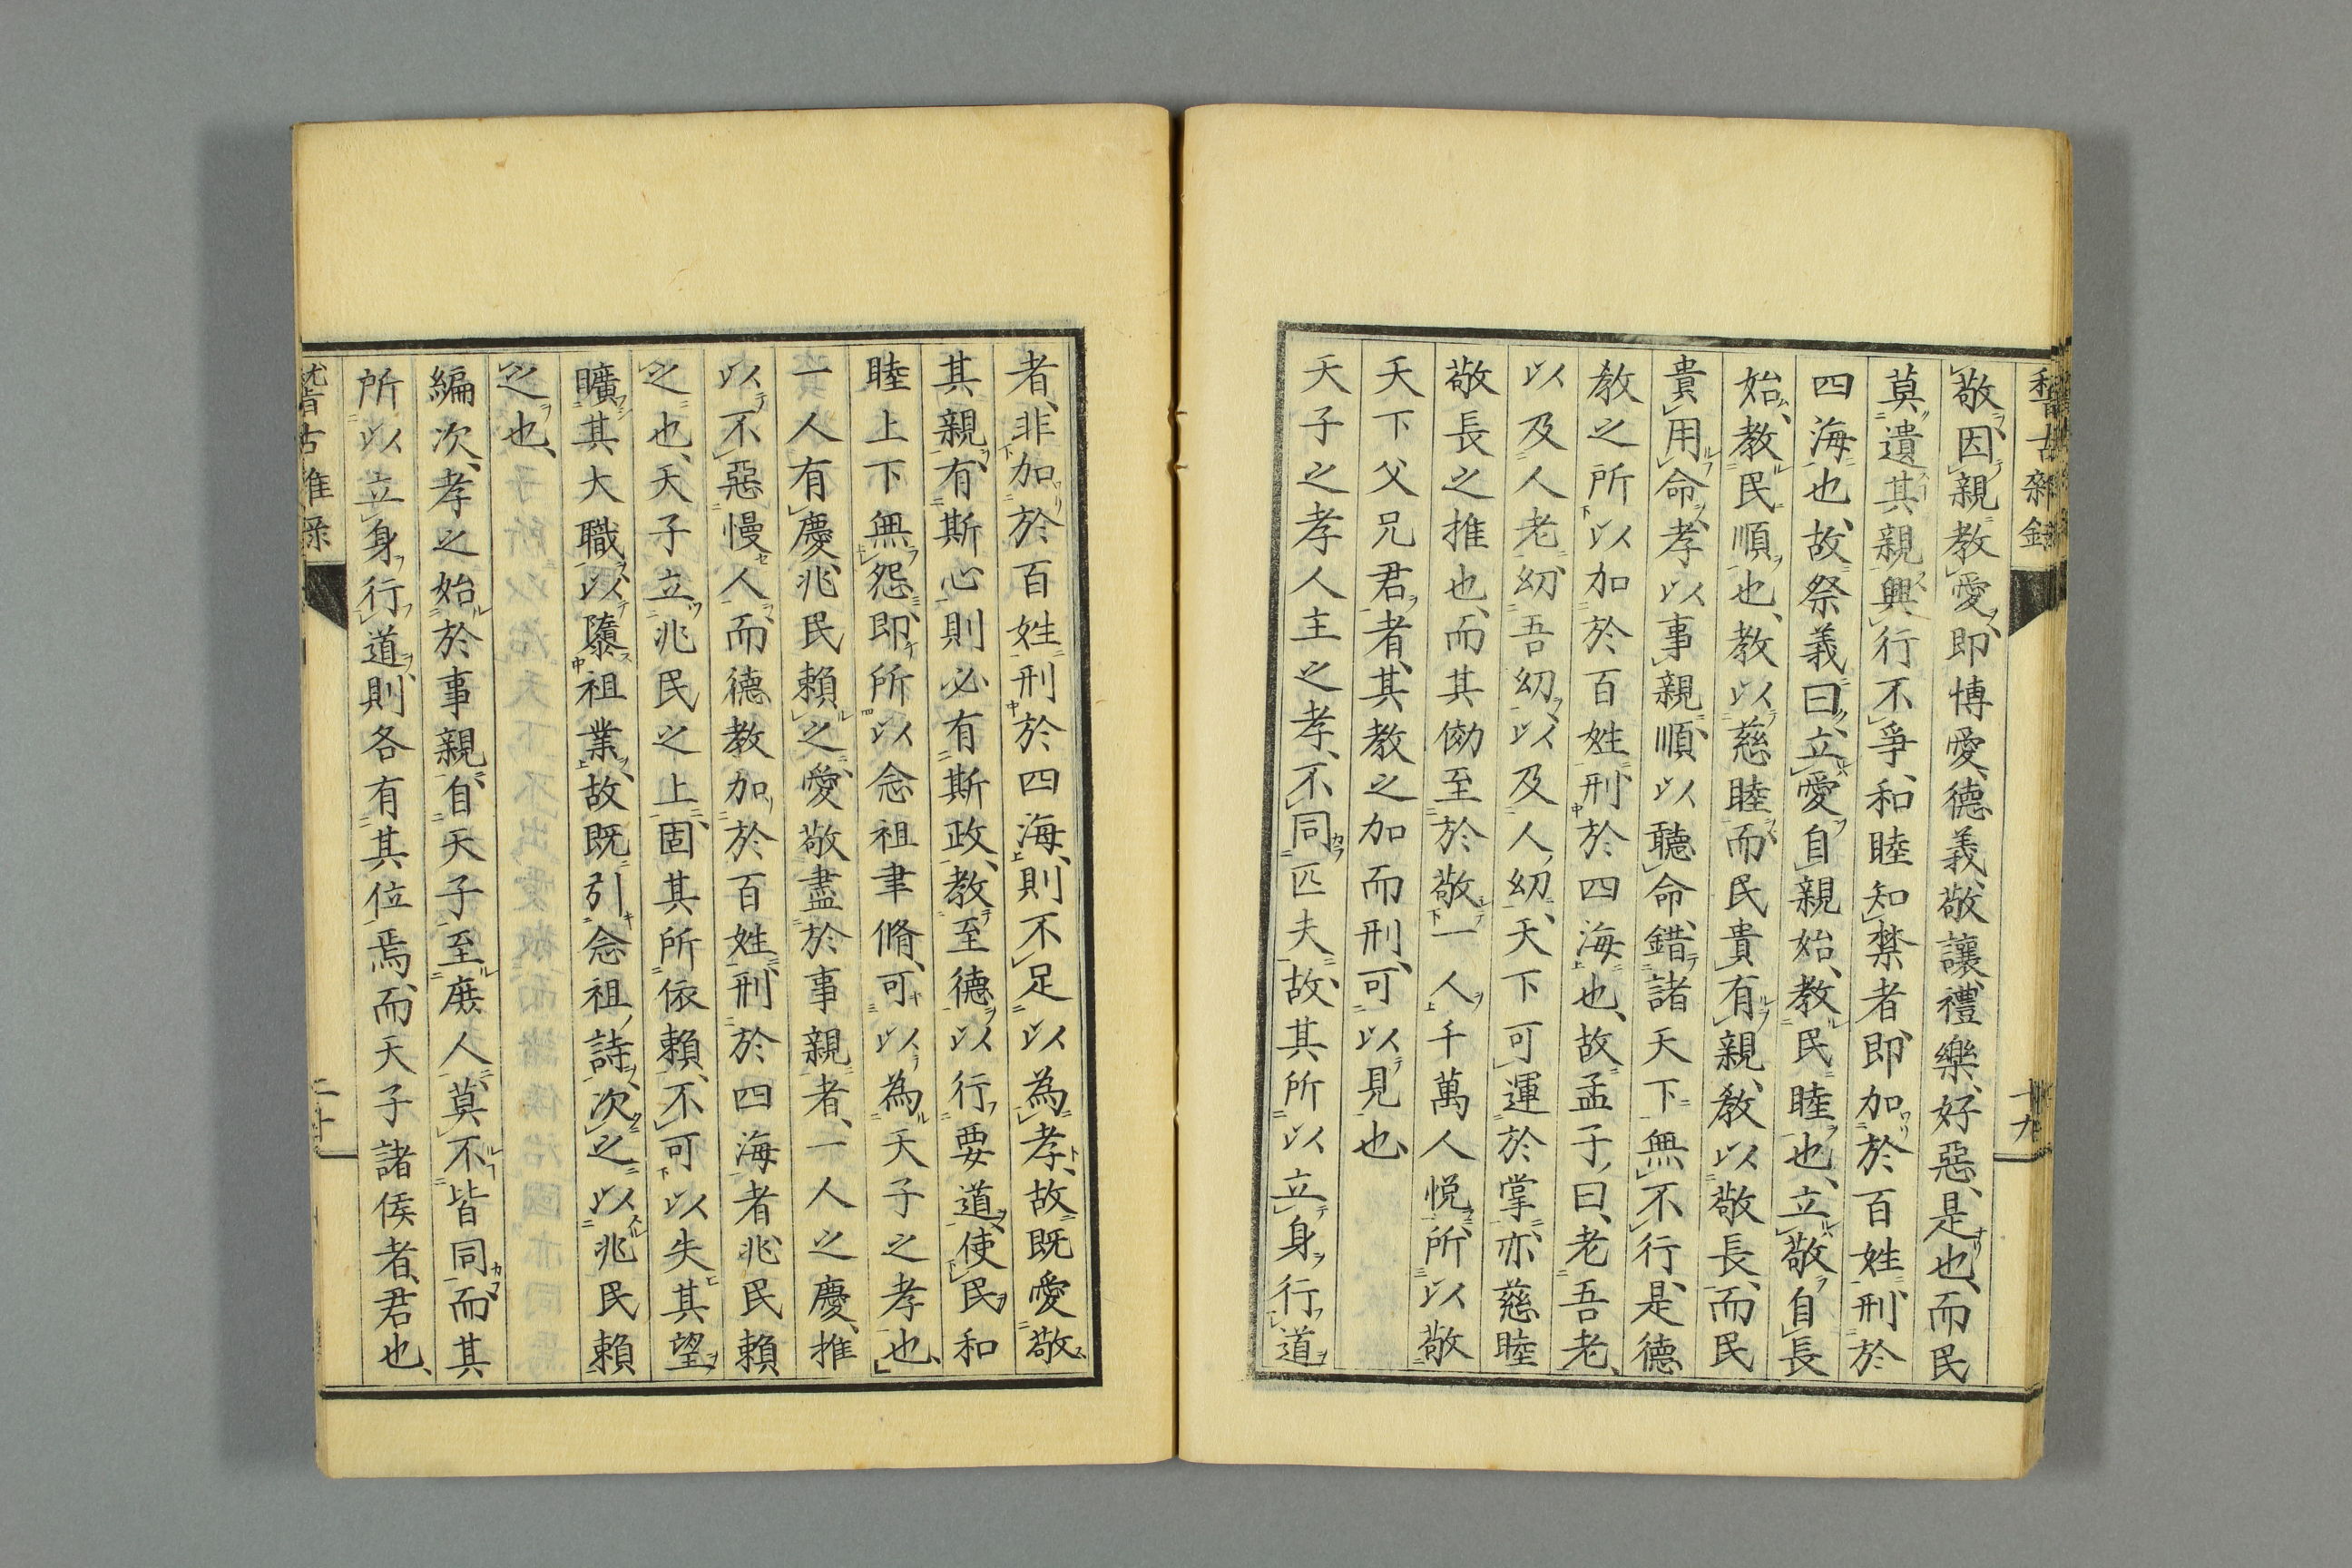 稽古雜錄
十九
敬因親教愛、即博愛、德義、敬讓、禮樂、好惡、是也、而民
莫遺其親、興行不爭、和睦知禁者、即加於百姓、刑於
四海也、故祭義曰、立愛自親始、教民睦也、立敬自長
始、教民順也、教以慈睦、而民貴有親、教以敬長、而民
貴用命、孝以事親、順以聽命、錯諸天下、無不行、是德
教之所以加於百姓、刑於四海也、故孟子曰、老吾老、
以及人老、幼吾幼、以及人幼、天下可運於掌、亦慈睦
敬長之推也、而其効至於敬一人、千萬人悅、所以敬
天下父兄君者、其教之加而刑、可以見也、
天子之孝、人主之孝、不同匹夫、故其所以立身行道
者、非加於百姓、刑於四海、則不足以為孝、故既愛敬
其親、有斯心、則必有斯政、教至德以行要道、使民和
睦、上下無怨、即所以念祖聿脩、可以為天子之孝也、
一人有慶、兆民賴之、愛敬盡於事親者、一人之慶、推
以不惡慢人、而德教加於百姓、刑於四海者、兆民賴
之也、天子立兆民之上、固其所依賴、不可以失其望
曠其大職、以隳祖業、故既引念祖詩、次之以兆民賴
之也、
編次、孝之始於事親、自天子至庶人、莫不皆同、而其
所以立身行道、則各有其位焉、而天子諸侯者、君也、
稽古雜錄
二十